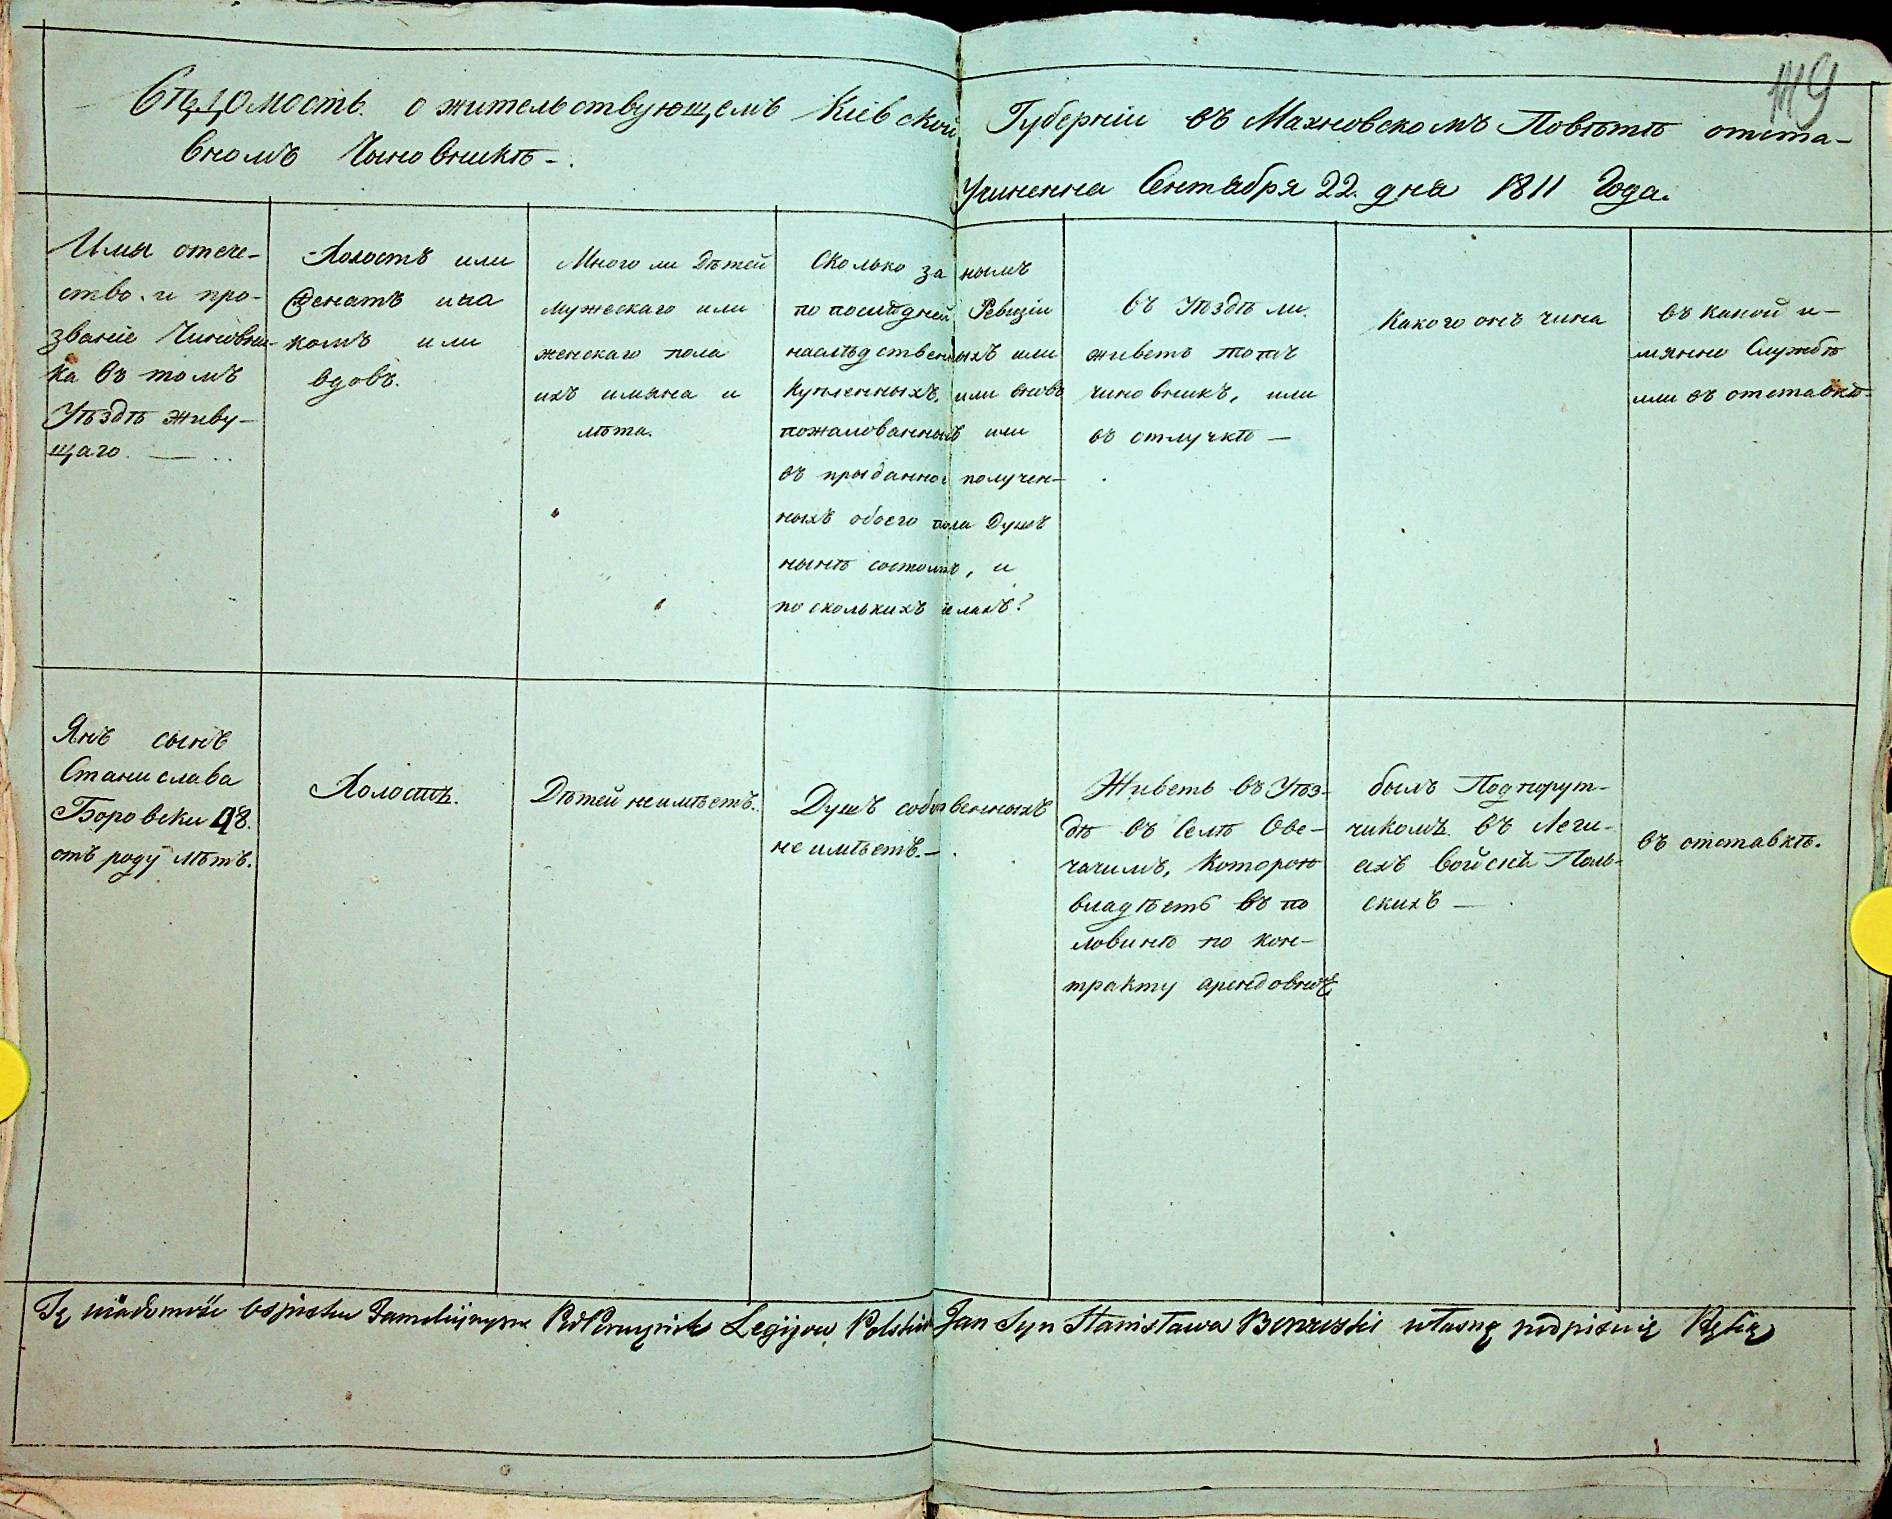 119
Вѣдомость о жительствующемъ Кіевской Губерніи въ Махновскомъ Повѣтѣ отста-
вномъ Чыновникѣ -.
Учиненна Сентября 22. дня 1811 Года.
Имя отече-
ство. и про-
званіе Чиновни-
ка въ томъ
Уѣздѣ живу-
щаго.
Холостъ или
женатъ и на
комъ или
вдовъ.
Много ли Дѣтей
мужескаго или
женскаго пола
ихъ имяна и
лѣта.
Сколько за нымъ
по послѣдней Ревизіи
наслѣдственныхъ или
купленныхъ, или вновь
пожалованныхъ или
въ прыданное получен-
ныхъ обоего пола Душъ
нынѣ состоитъ, и
по сколькихъ
въ Уѣздѣ ли
живетъ тотъ
чиновникъ, или
въ отлучкѣ —
Какого онъ чина
въ какой и-
мянно Службѣ
или въ отставкѣ
Янъ сынъ
Станислава
Боровски 48.
отъ роду лѣтъ.
Холостъ.
Дѣтей неимѣетъ.
Душъ собственныхъ
не имѣетъ.-
Живетъ въ Уѣз-
дѣ въ Селѣ Ове-
чачимъ, которою
владѣетъ въ по
ловинѣ по кон-
тракту
былъ Подпорут-
чикомъ въ Леги-
ахъ войскъ Поль-
скихъ —
въ отставкѣ.
Tę Legijow Polskich Jan Syn Stanisława Borowski własną podpisuię Ręką